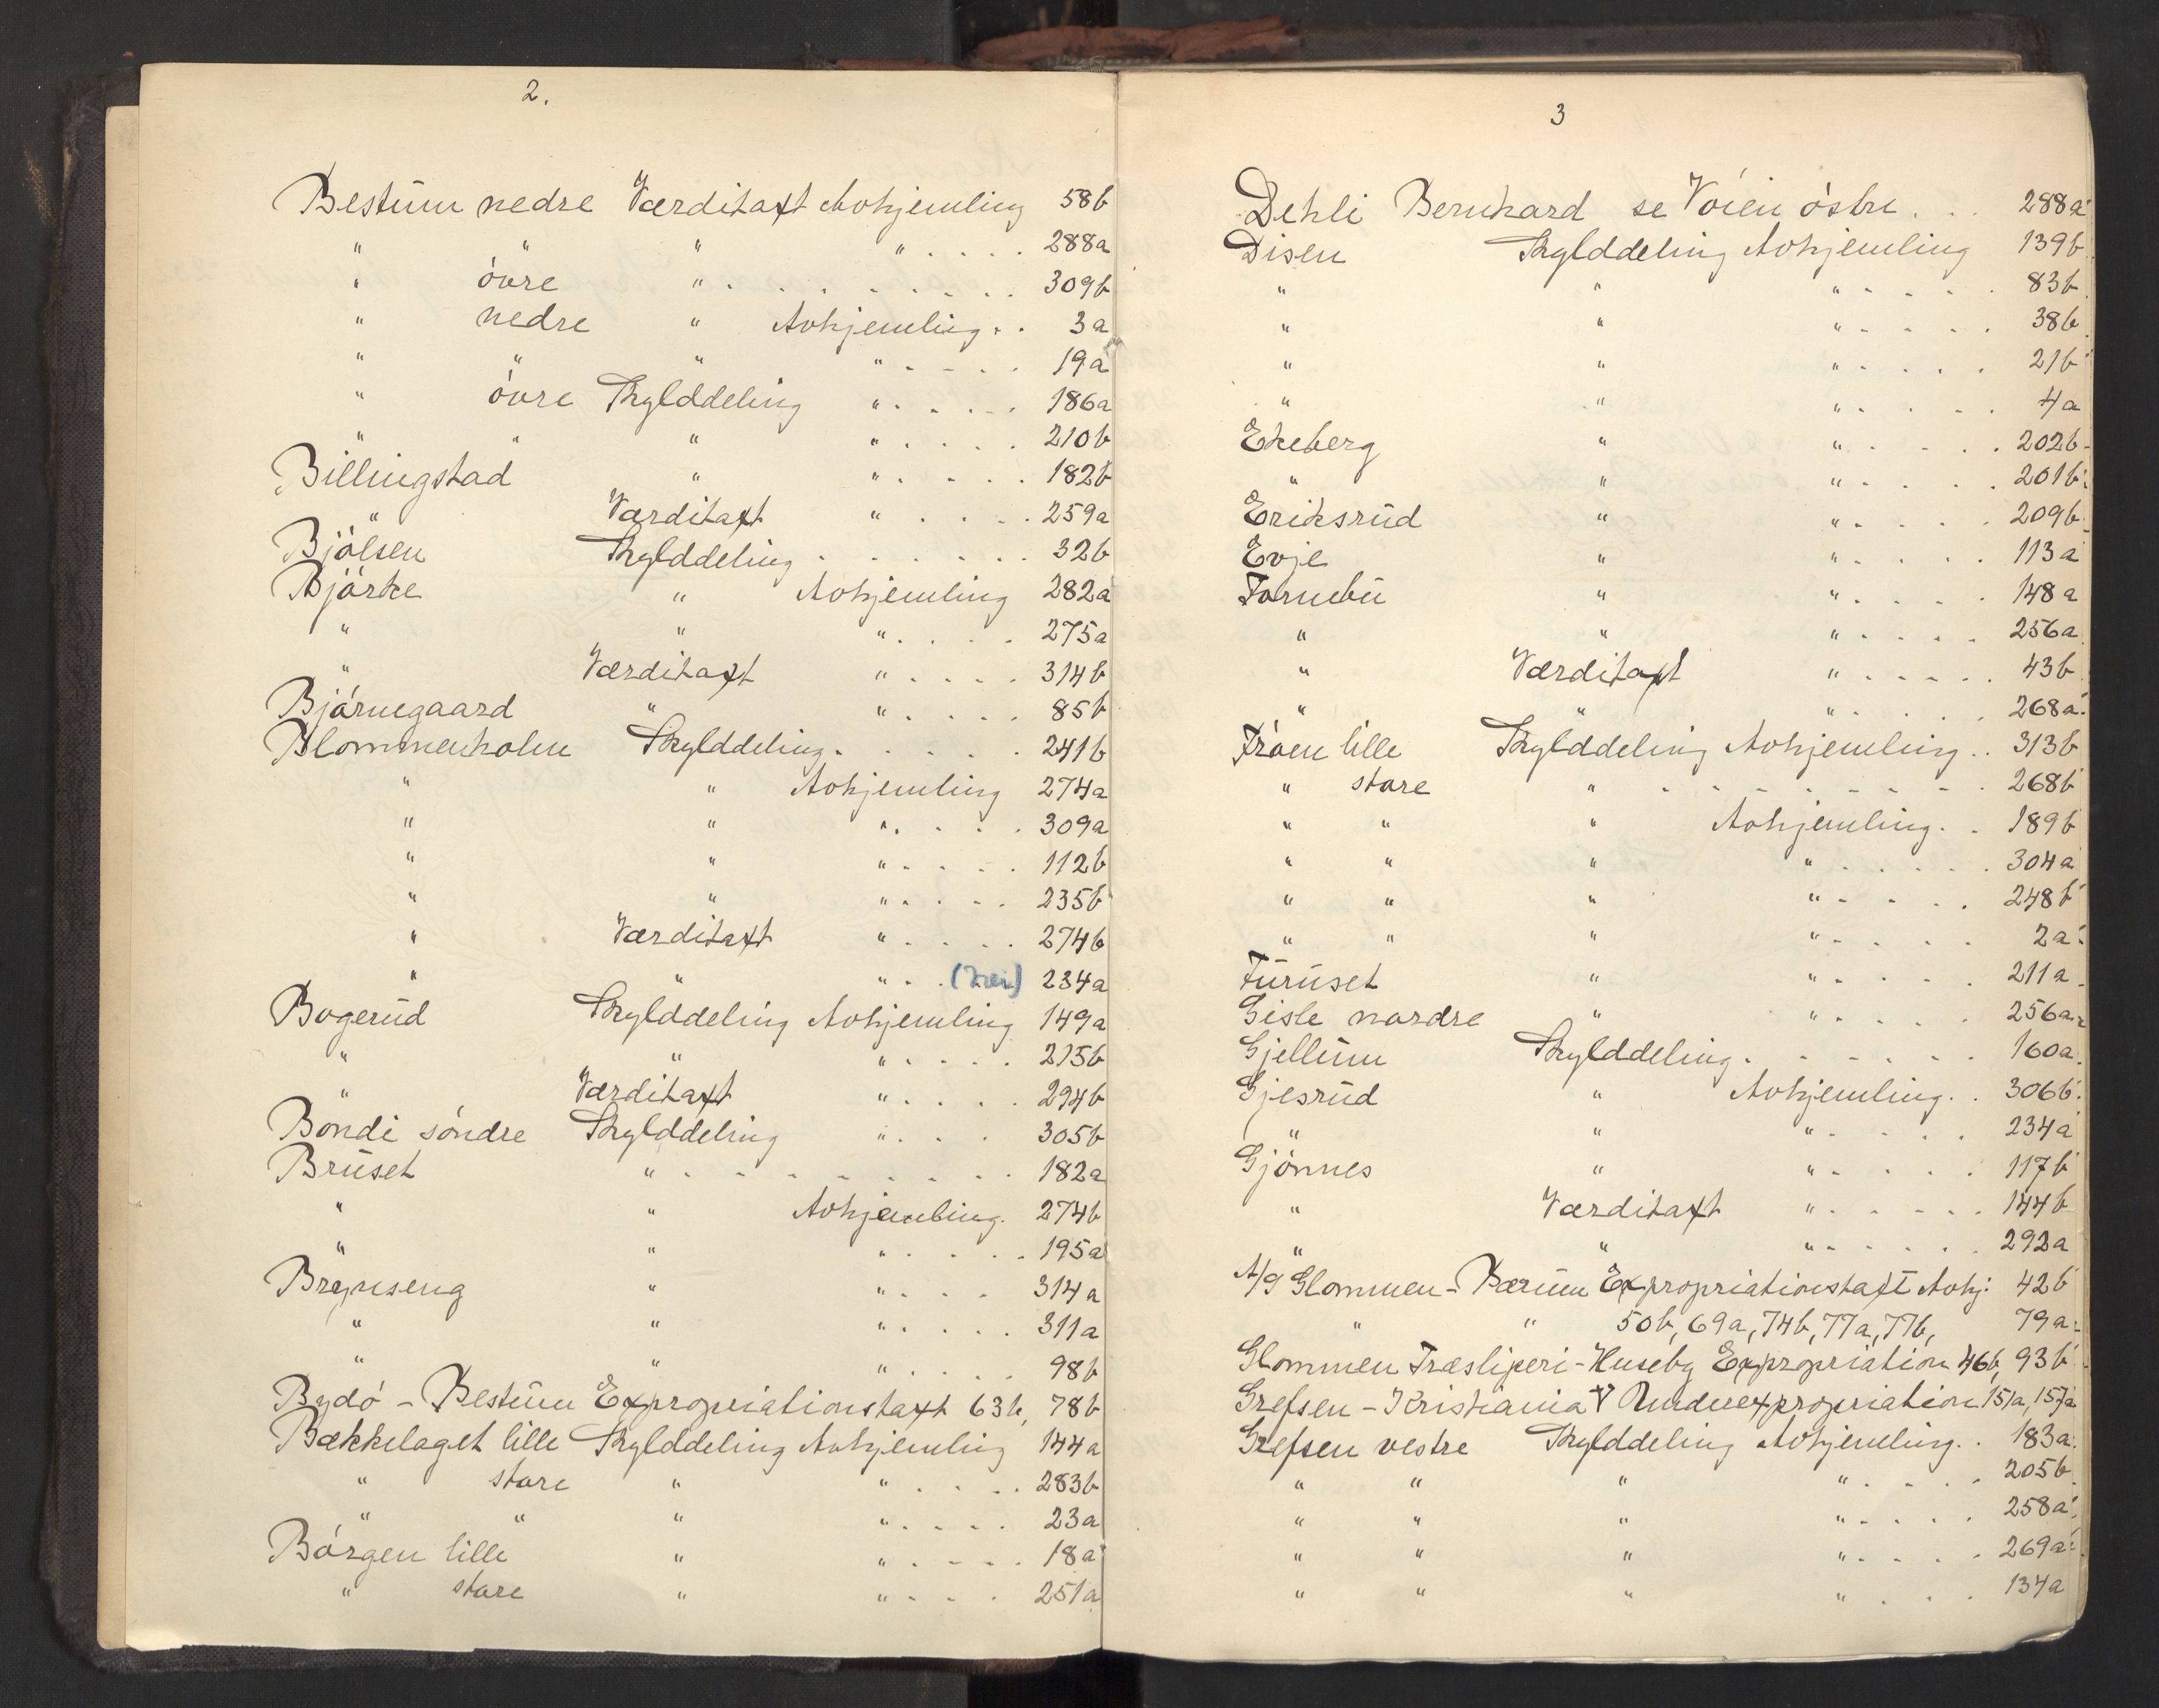 2.
Bestum nedre Værditaxt Avhjemling 58b
" " " " . . . . 288a
" övre " . . . . . . . . . 309b
" nedre " Avhjemling . . 3a
" " " " . . . . 19a
" övre Skylddeling " . . . . 186a
" " " " . . . . 210b
Billingstad " " . . . . 182b
" Værditaxt " . . . . 259a
Bjölsen Skylddeling . . . . . . 32b
Bjärke " Avhjemling 282a
" " " . . . . 275a
" Værditaxt " . . . . 314b
Bjárnegaard " " . . . . 85b
Blommenholm Skylddeling . . . . . 241b
" " Avhjemling 274a
" " " . . . . 309a
" " " . . . . 112b
" " " . . . . 235b
" Værditaxt " . . . . 274b
" " " . . (Nei) 234a
Bogerud Skylddeling Avhjemling 149a
" " " . . . . 215b
" Værditaxt " . . . . 294b
Bondi söndre Skylddeling " . . . 305b
Bruset " . . . . . . . . . 182a
" " Avhjemling. 274b
" " " . . . . 195a
Brynseng " " . . . . 314a
" " " . . . . 311a
" " " . . . . 98b
Bygdö - Bestum Expropriationstaxt 63b, 78b
Bækkelaget lille Skylddeling Avhjemling 144a
" store " " . . . . 283b
" " " " . . . . 23a
Börgen lille " " . . . . 18a
" store " " . . . . 251a
3
Dehli Bernhard se Vöien östre . . . 288a
Disen Skylddeling Avhjemling 139b
" " " . . . . . 83b
" " " . . . . . 38b
" " " . . . . . 21b
" " " . . . . . 4a
Ekeberg " " . . . . 202b
" " " . . . . 201b
Eriksrud " " . . . . 209b
Evje " " . . . . 113a
Fornebu " " . . . . 148a
" " " . . . . . 256a
" Værditaxt " . . . . . 43b
" " " . . . . . 268a
Fröen lille Skylddeling Avhjemling . . 313b
" store " . . . . . . . . 268b
" " " Avhjemling . . 189b
" " " " . . . . . 304a
" " " " . . . . . 248b
" " " " . . . . 2a
Furuset " " . . . . 211a
Gisle nordre " " . . . . 256a
Gjellum Skylddeling . . . . . . 160a
Gjesrud " Avhjemling . . 306b
" " " . . . . 234a
Gjönnes " " . . . . 117b
" Værditaxt " . . . . . 144b
" " " . . . . . 292a
A/S Glommen - Bærum Expropriationstaxt Avhj: 42b
" " 50b, 69a, 74b, 77a, 77b, 79a
Glommen Træsliperi - Huseby Expropriation 46b, 93b
Grefsen - Kristiania V Underexpropriation 151a, 157a
Grefsen vestre Skylddeling Avhjemling . . 183a
" " " " . . . . 205b
" " " " . . . . . 258a
" " " " . . . . . 269a
" " " " . . . . 134a